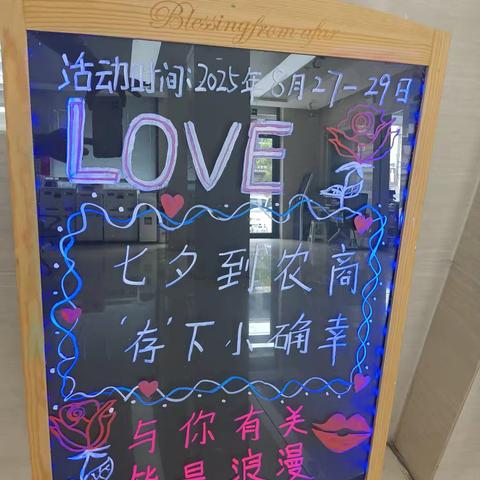 Blessing from afar
活动时间:2025年8月27-29日
LOVE
七夕到农商
'存'下小确幸
与你有关
皆是浪漫